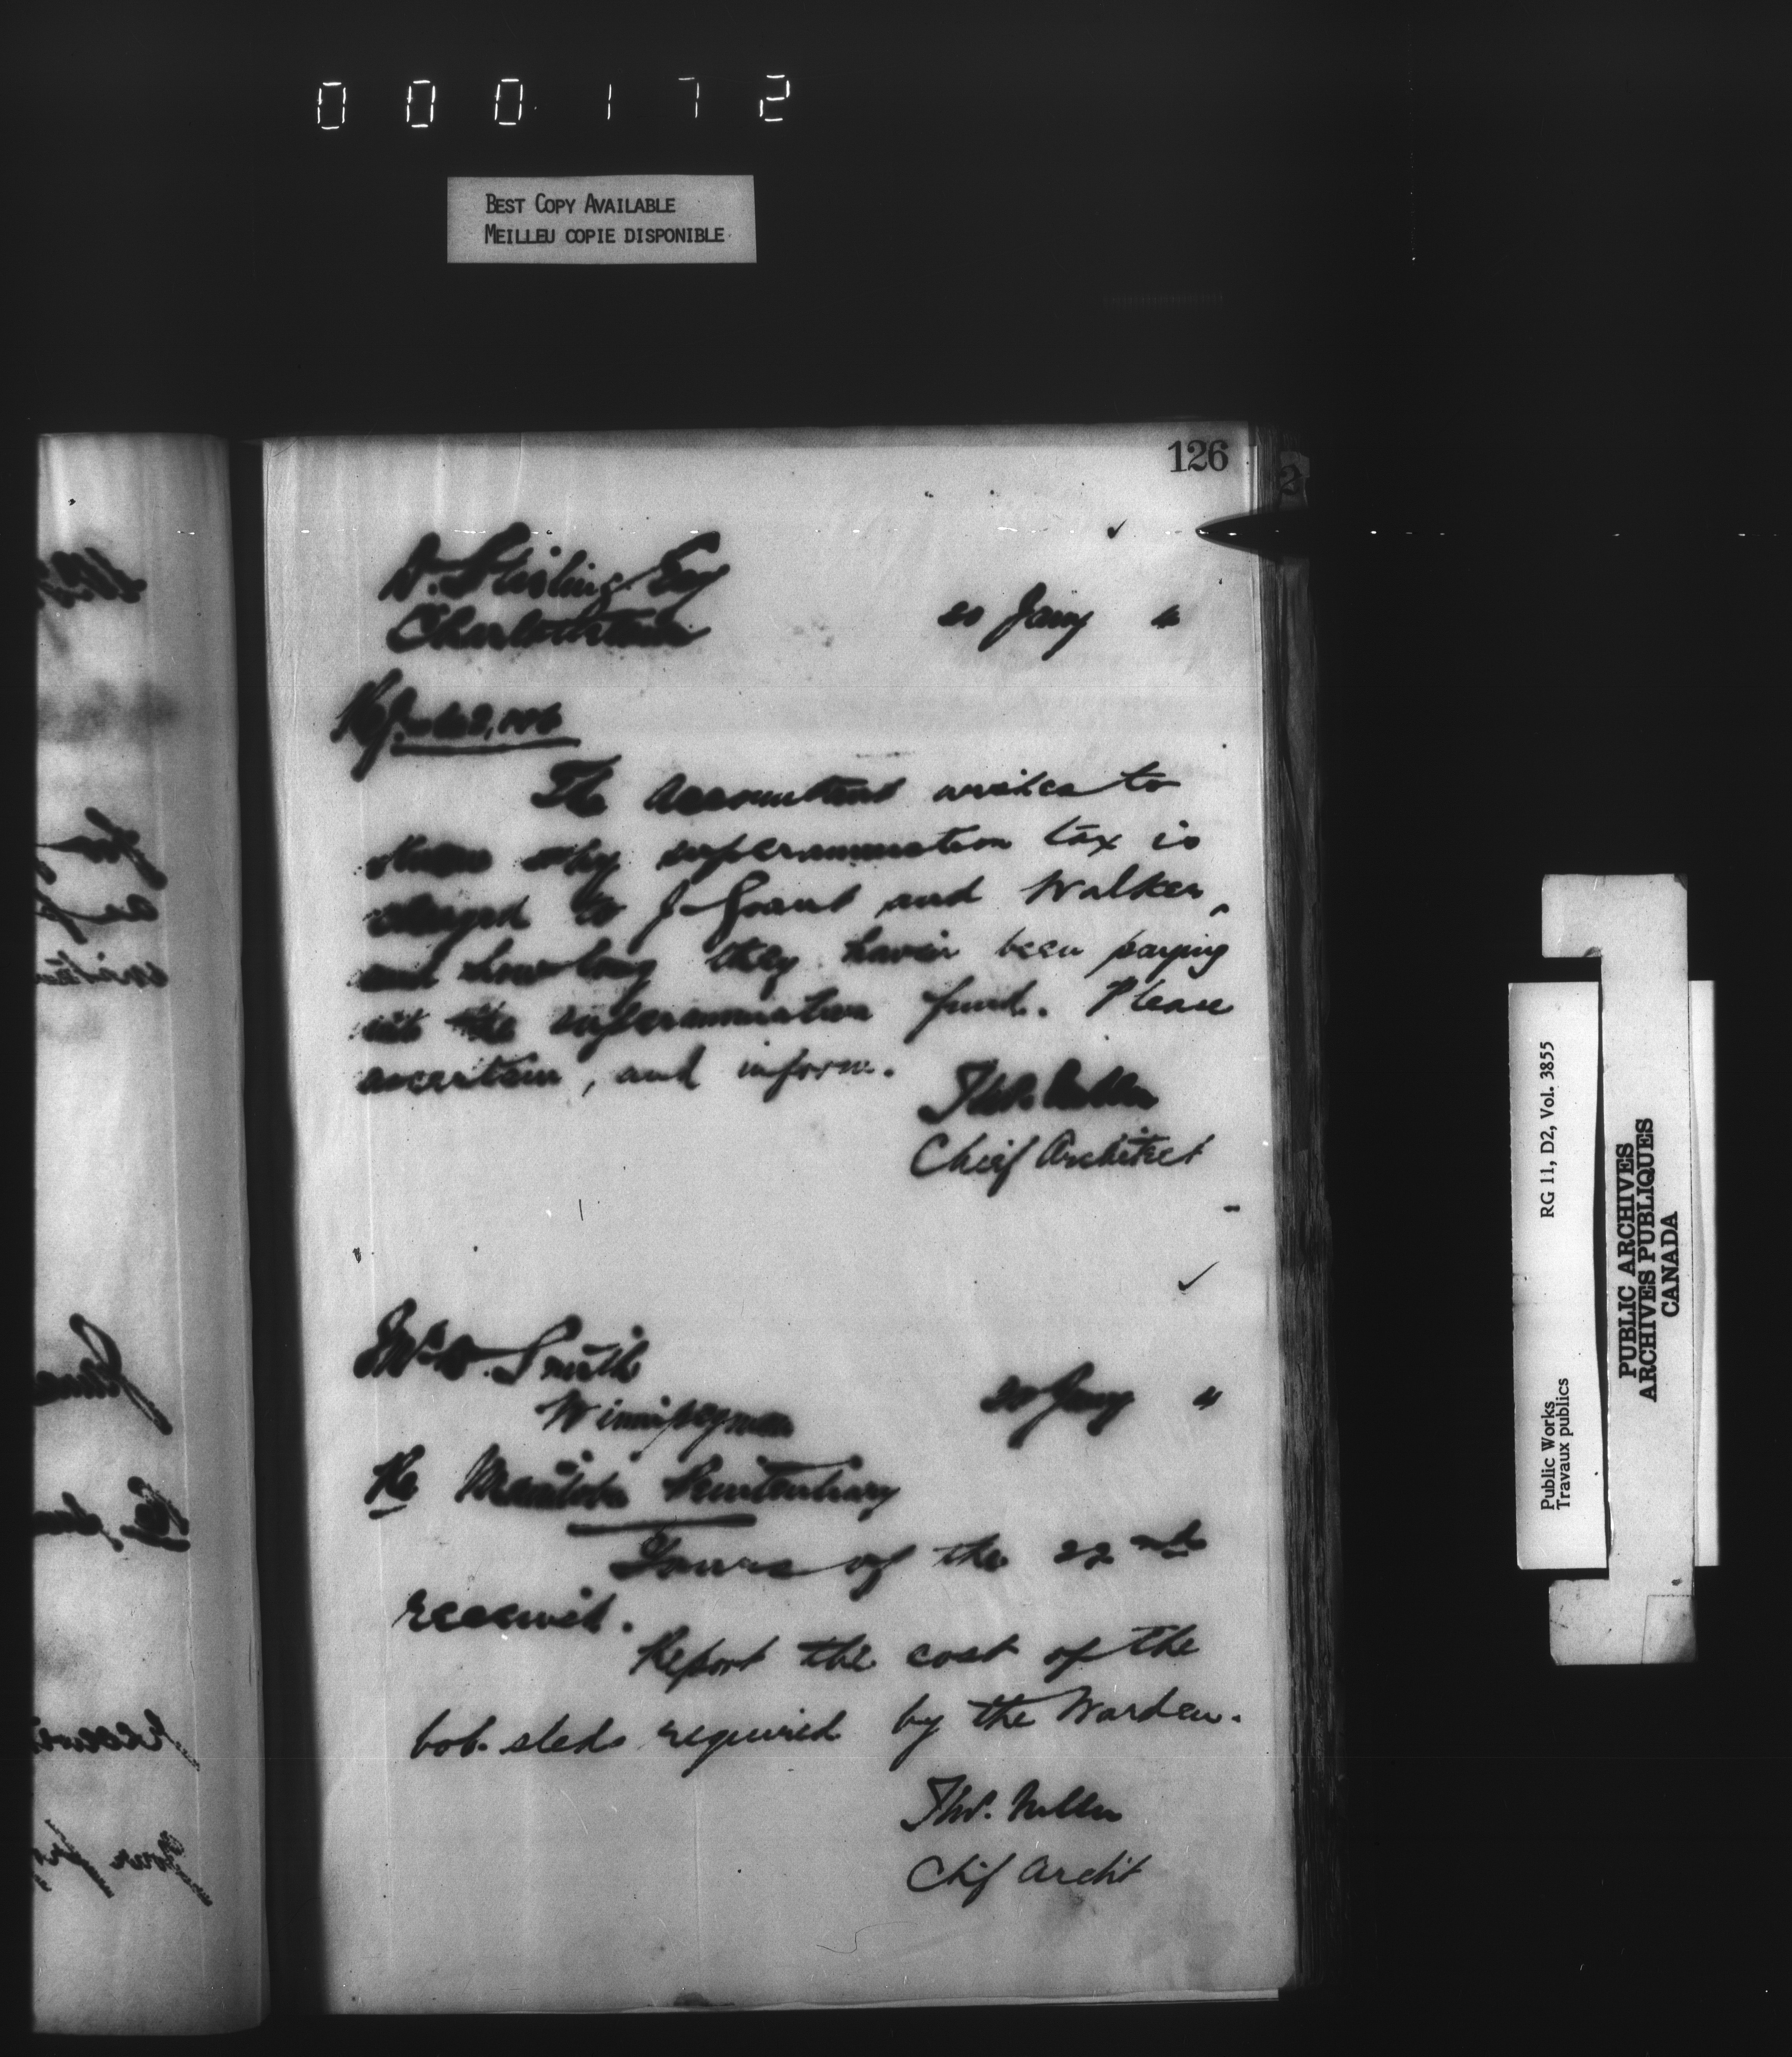 000172
BEST COPY AVAILABLE
MEILLEU COPIE DISPONIBLE
126
D. Stirling Esq
Charlottetown
20 Jany "
The Accountant wishes to
know why superannuation tax is
charged to J. Grant and Walker,
and how long they have been paying
into the superannuation fund. Please
ascertain, and inform.
Chief Architect
Smith
Winnipeg Man
Jany "
Re Manitoba Penitentiary
Yours of the 22nd
received.
Report the cost of the
bob. sleds required by the Warden.
Chf Archt
Public Works
Travaux publics
RG 11, D2, Vol. 3855
PUBLIC ARCHIVES
ARCHIVES PUBLIQUES
CANADA